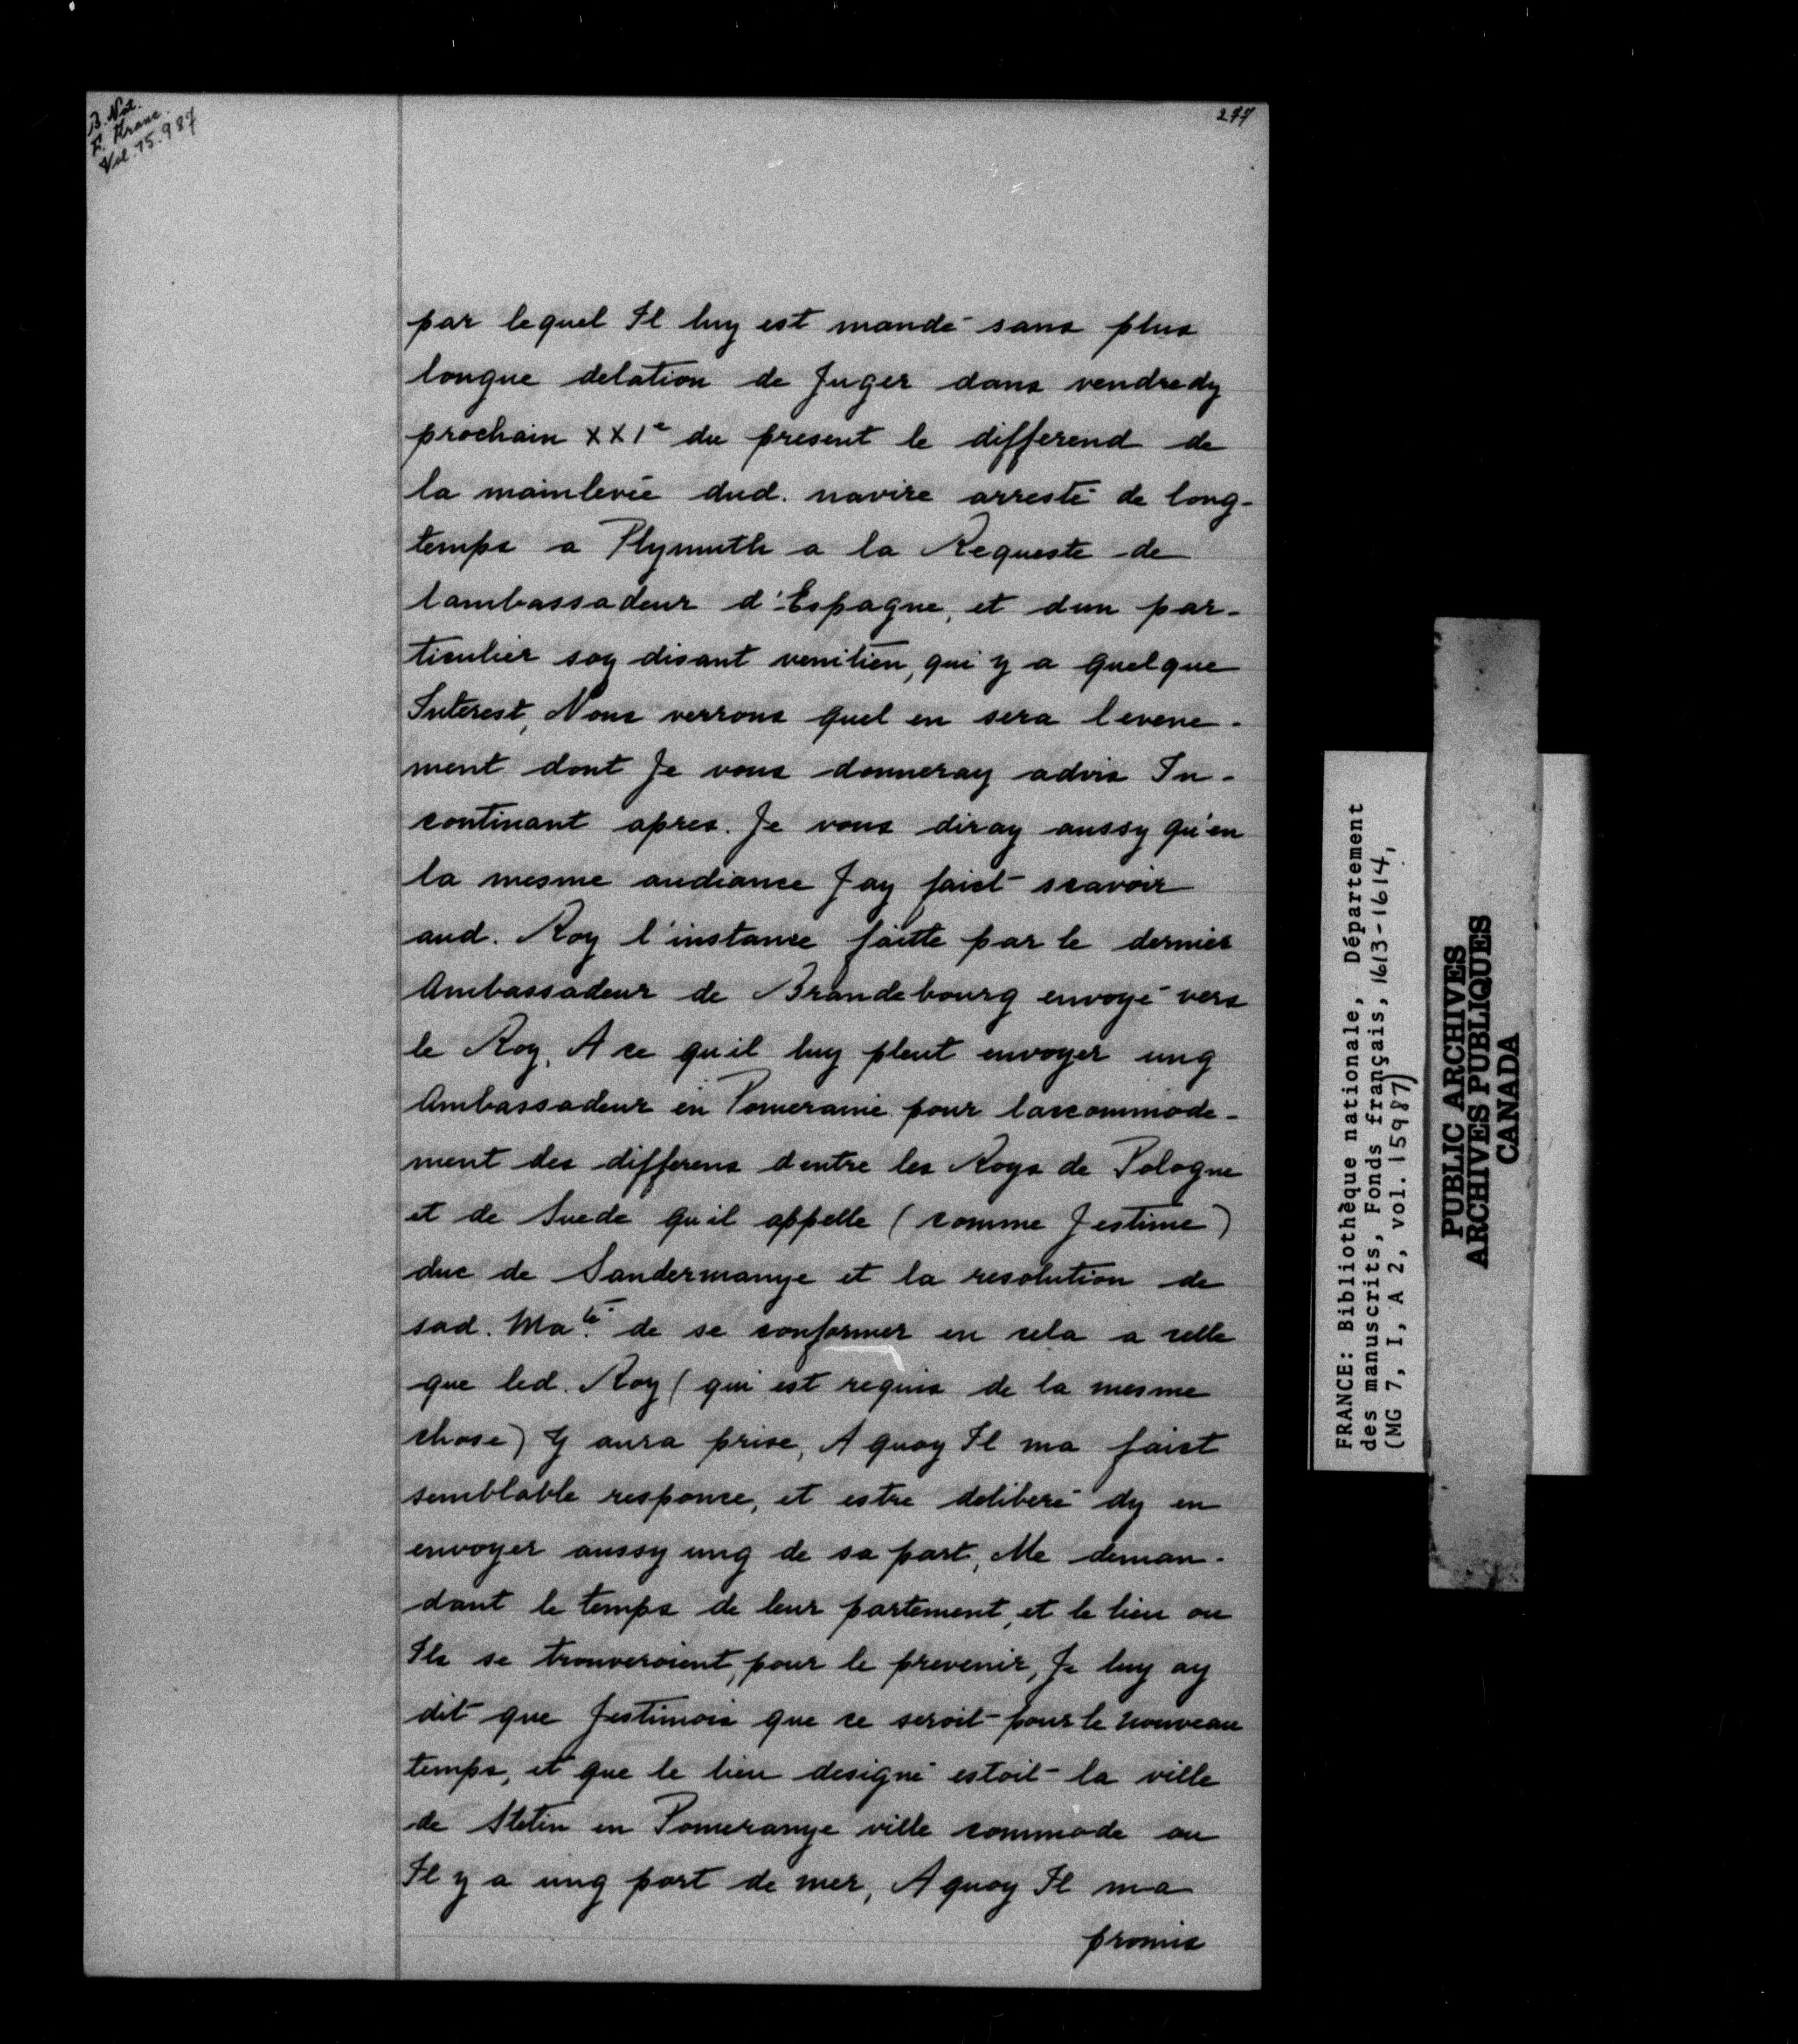 B. Nat.
F. franc.
Vol. 15.987
277
par lequel Il luy est mandé sans plus
longue delation de Juger dans vendredy
prochain XXIe du present le differend de
la mainlevée dud. navire arresté de long-
temps a Plymuth a la Requeste de
lambassadeur d'Espagne, et dun par-
ticulier soy disant venitien, qui y a quelque
Interest, Nous verrons quel en sera levene-
ment dont Je vous donneray advis In-
continant apres. Je vous diray aussy qu'en
la mesme audiance Jay faict scavoir
aud. Roy l'instance faitte par le dernier
Ambassadeur de Brandebourg envoyé vers
le Roy, A ce quil luy pleut envoyer ung
Ambassadeur en Pomeranie pour laccommode-
ment des differens dentre les Roys de Pologne
et de Suede quil appelle (comme Jestime)
duc de Sandermanye et la resolution de
sad. Maté. de se conformer en cela a celle
que led. Roy (qui est requis de la mesme
chose) Y aura prise, A quoy Il ma faict
semblable responce, et estre deliberé dy en
envoyer aussy ung de sa part, Me deman-
dant le temps de leur partement, et le lieu ou
Ils se trouveroient, pour le prevenir, Je luy ay
dit que Jestimois que ce seroit pour le nouveau
temps, et que le lieu designé estoit la ville
de Stetin en Pomeranye ville commode ou
Il y a ung port de mer, A quoy Il ma
promis
FRANCE: Bibliothèque nationale, Département
des manuscrits, Fonds français, 1613-1614,
(MG 7, I, A 2, vol. 15987)
PUBLIC ARCHIVES
ARCHIVES PUBLIQUES
CANADA